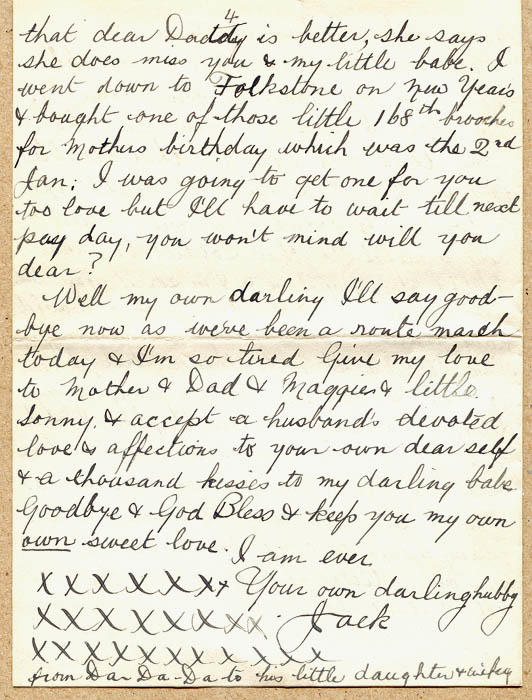 4
that dear Daddy is better, she says
she does miss you & my little babe. I
went down to Folkstone on new Years
& bought one of those little 168th brooches
for Mothers birthday which was the 2nd
Jan; I was going to get one for you
too love but I'll have to wait till next
pay day, you won't mind will you
dear?
Well my own darling I'll say good-
bye now as we've been a route march
today & I'm so tired Give my love
to Mother & Dad & Maggie & little
Sonny. & accept a husband's devoted
love & affections to your own dear self
& a thousand kisses to my darling babe
Goodbye & God Bless & keep you my own
own sweet love.
I am ever
X X X X X X X Your own darling hubby
X X X X X X X X X Jack
X X X X X X X X X X X X
from Da-Da-Da-to his little daughter &